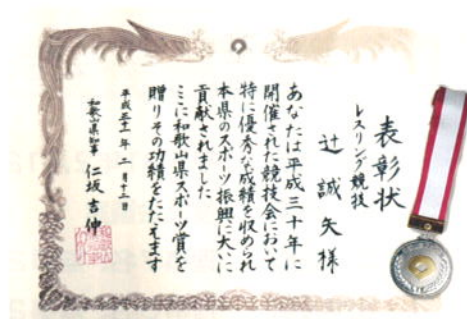 表彰状
レスリング競技
辻 誠矢 様
あなたは平成三十年に
開催された競技会において
特に優秀な成績を収められ
本県のスポーツ振興に大いに
貢献されました
ここに和歌山県スポーツ賞を
贈りその功績をたたえます
平成三十一年 二月十二日
和歌山県知事 仁坂吉伸